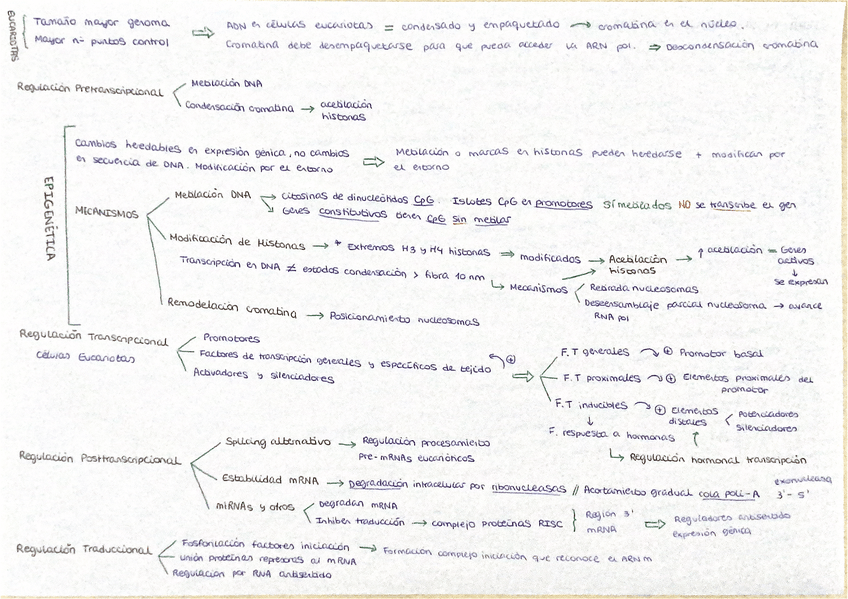 EUCARIOTAS
Tamaño mayor genoma
Mayor nº puntos control
⇒ ADN en células eucariotas = condensado y empaquetado → cromatina en el núcleo.
Cromatina debe desempaquetarse para que pueda acceder la ARN pol. ⇒ Descondensación cromatina
Regulación Pretranscripcional
Metilación DNA
Condensación cromatina → acetilación
histonas
EPIGENÉTICA
Cambios heredables en expresión génica, no cambios
en secuencia de DNA. Modificación por el entorno
⇒ Metilación o marcas en histonas pueden heredarse + modifican por
el entorno
MECANISMOS
Metilación DNA → Citosinas de dinucleótidos CpG. Islotes CpG en promotores si metilados NO se transcribe el gen
↘ Genes constitutivos tienen CpG sin metilar
Modificación de Histonas → + Extremos H3 y H4 histonas ⇒ modificados → Acetilación
histonas
→ ↑ acetilación = Genes
activos
↓
se expresan
Transcripción en DNA ≠ estados condensación > fibra 10 nm
↳ Mecanismos
Retirada nucleosomas
Desensamblaje parcial nucleosoma → avance
RNA pol
Remodelación cromatina → Posicionamiento nucleosomas
Regulación Transcripcional
Células Eucariotas
Promotores
Factores de transcripción generales y específicos de tejido
Activadores y silenciadores
⊕
⇒ F.T generales ⊕ Promotor basal
F.T proximales ⊕ Elementos proximales del
promotor
F.T inducibles ⊕ Elementos
distales
Potenciadores
silenciadores
↓
F. respuesta a hormonas ↑
↳ Regulación hormonal transcripción
Regulación Posttranscripcional
Splicing alternativo → Regulación procesamiento
pre-mRNAs eucarióticos
Estabilidad mRNA → Degradación intracelular por ribonucleasas // Acortamiento gradual cola poli-A
exonucleasa
3'-5'
miRNAs y otros
Degradan mRNA
Inhiben traducción → complejo proteínas RISC
Región 3'
mRNA
⇒ Reguladores antisentido
expresión génica
Regulación Traduccional
Fosforilación factores iniciación → Formación complejo iniciación que reconoce el ARNm
unión proteínas represoras al mRNA
Regulación por RNA antisentido